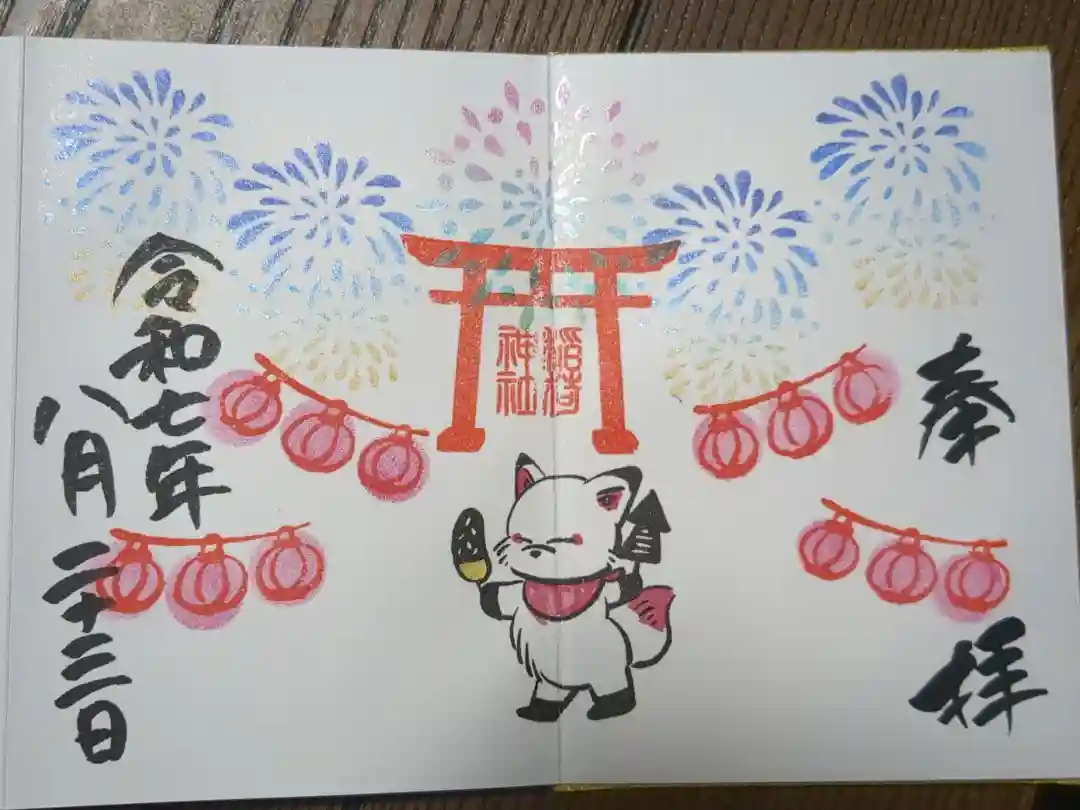 奉拝
稲荷
神社
令和七年
八月二十三日